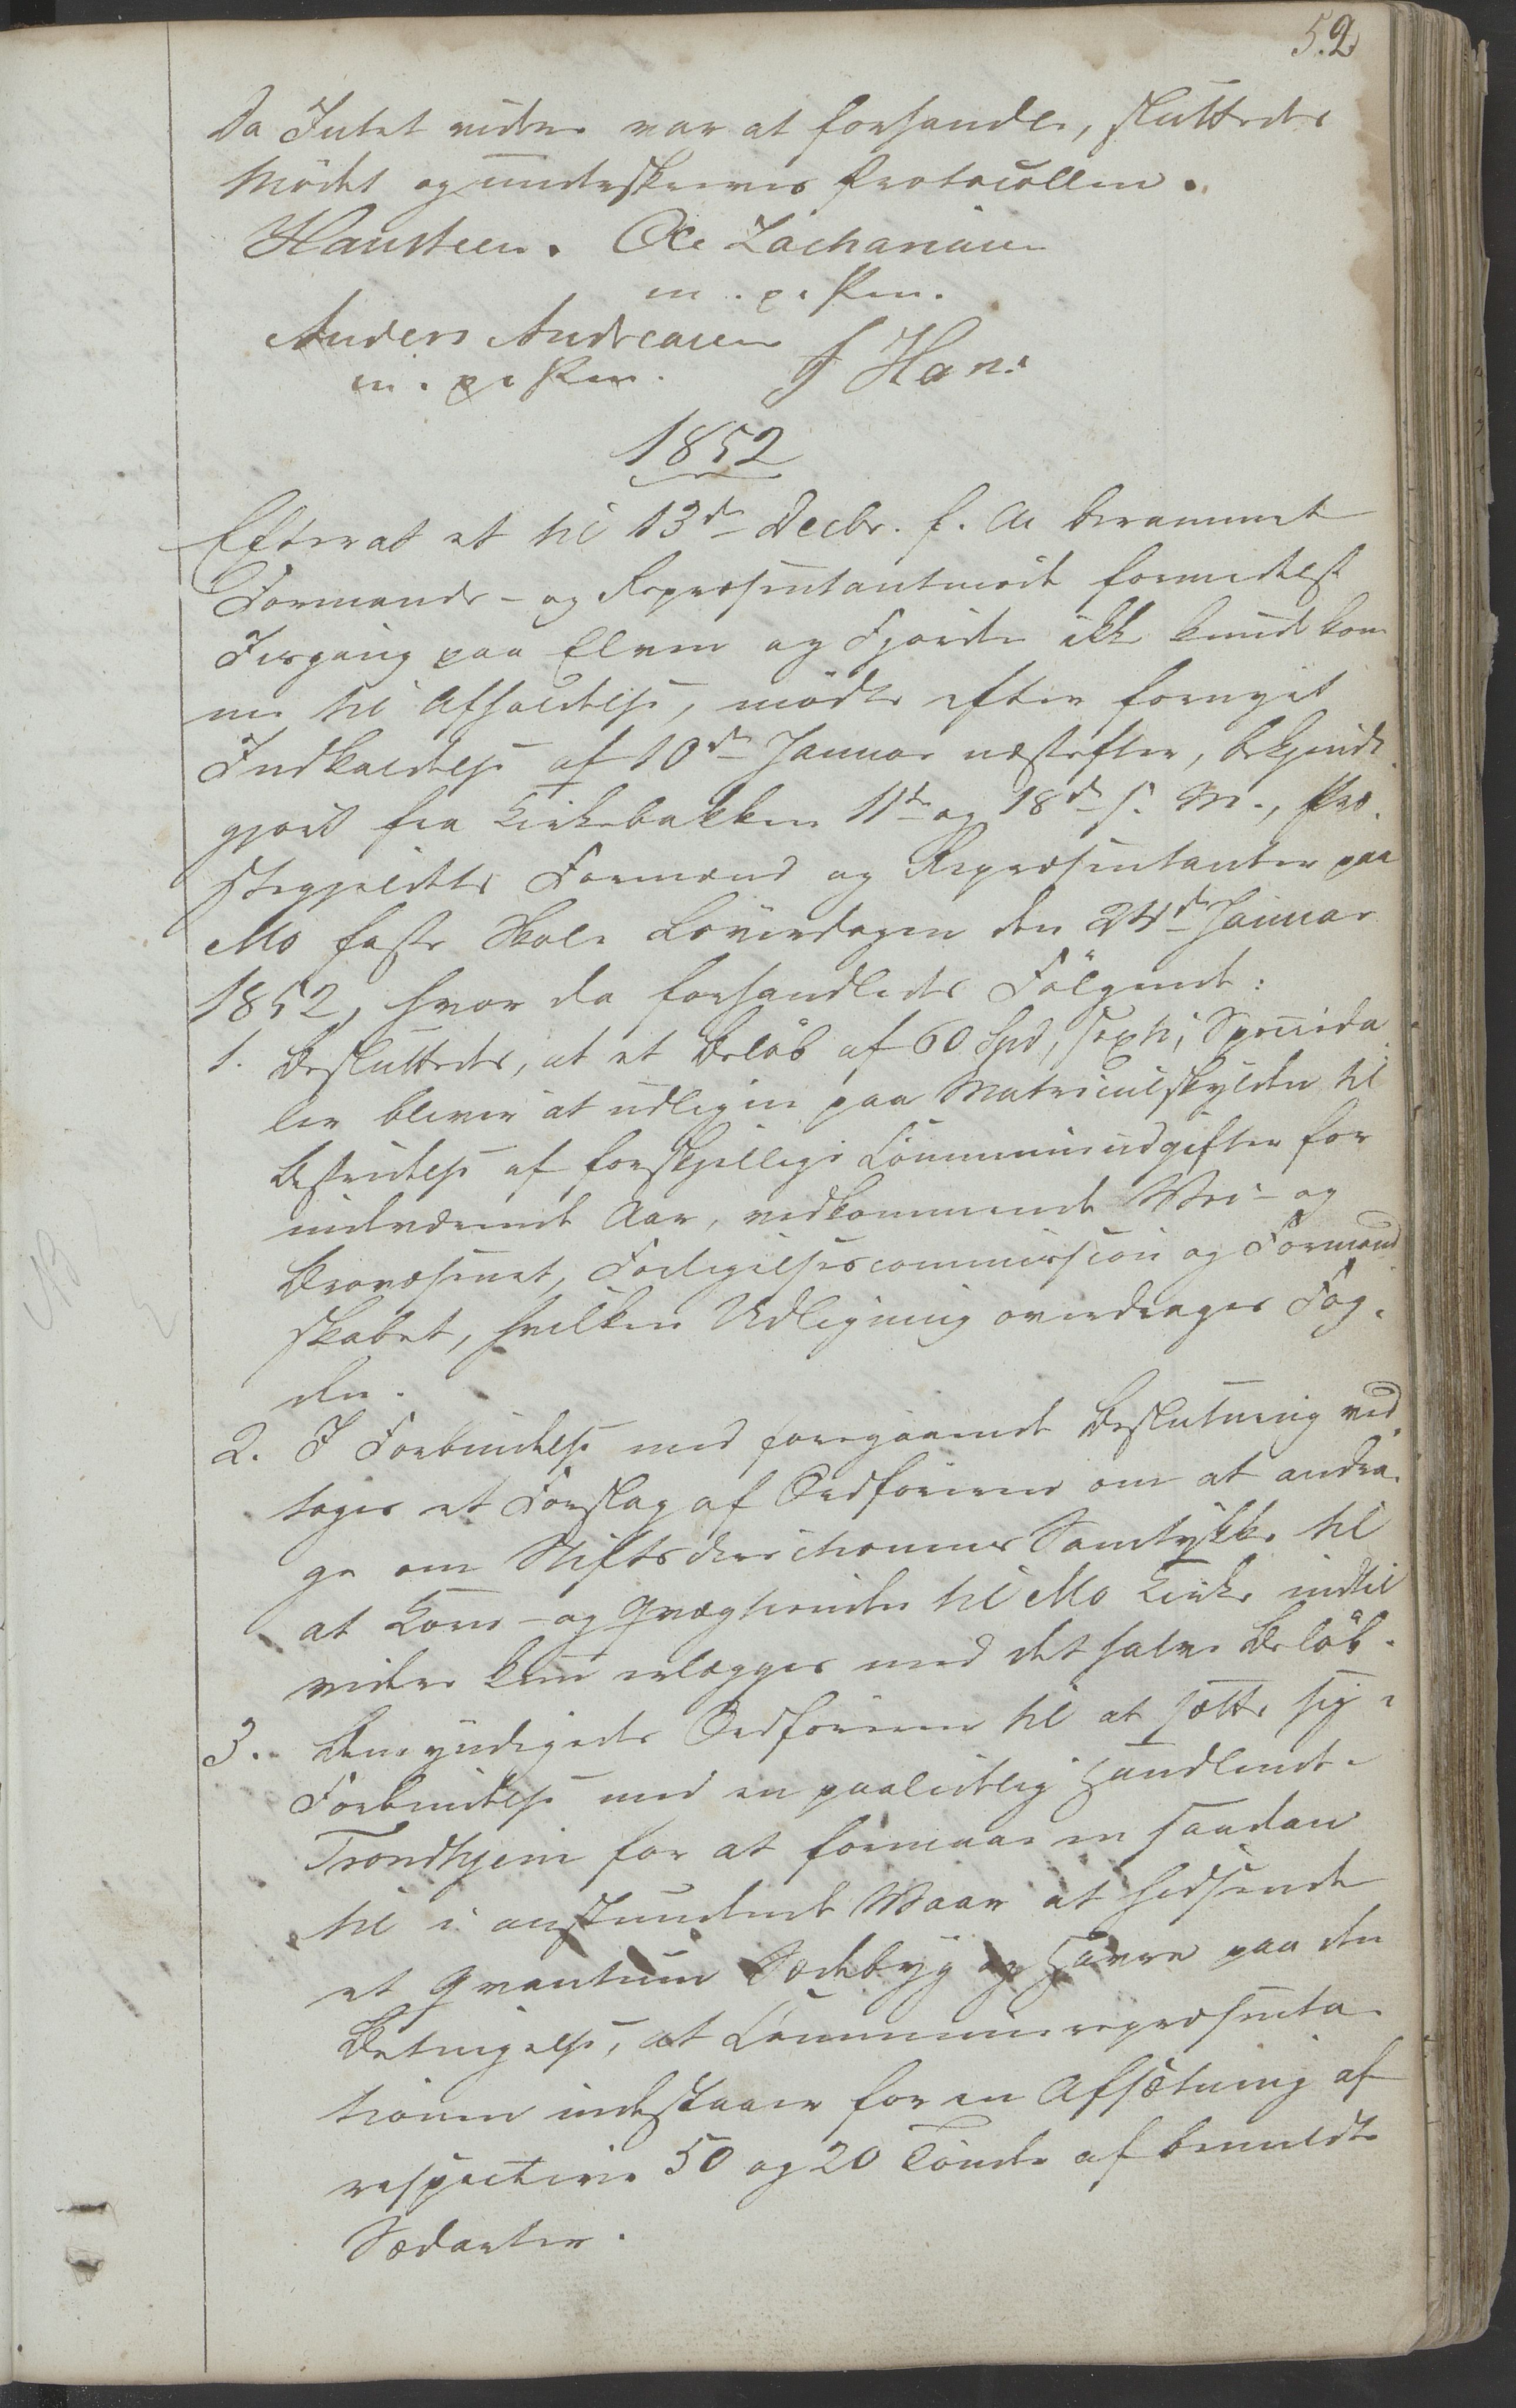 52
Da Intet videre var at forhandle, sluttedes
Mödet og underskreves Protocollen.
Hansteen. Ole Zachariasen
m. p. Pen.
Anders Andreasen
m. p. Pen. J Han:
1852
Efterat et til 13de Decbr. f. A. berammet
Formands- og Repræsentantmöde formedelst
Iisgang paa Elven og Fjorden ikke kunde kom
me til Afholdelse, mödte efter fornyet
Indkaldelse af 10de Januar næstefter, bekjendt
gjort fra Kirkebakken 11te og 18de s. M., Præ-
stegjeldets Formænd og Repræsentanter paa
Mo faste Skole Löverdagen den 24de Januar
1852, hvor da forhandledes Fölgende:
1. Besluttedes, at et Belöb af 60 Spd, sexti, Specieda-
ler bliver at udligne paa Matriculskylden til
Bestridelse af forskjellige Communeudgifter for
indeværende Aar, vedkommende Vei- og
Brovæsenet, Forligelsescommission og Formand
skabet, hvilken Udligning overdrages Fog-
den.
2. I Forbindelse med foregaaende Beslutning ved
toges et Forslag af Ordföreren om at andra-
ge om Stiftsdirectionens Samtykke til
at Korn- og Qvægtienden til Mo Kirke indtil
videre kun erlægges med det halve Belöb.
3. Bemyndigedes Ordföreren til at sætte sig i
Forbindelse med en paalidelig Handlende i
Trondhjem for at formaae en saadan
til i anstundende Vaar at hidsende
et Qvantum Sædebyg og Havre paa den
Betingelse, at Communerepræsenta-
tionen indestaaer for en Afsætning af
respective 50 og 20 Tönder af bemeldte
Sædarter.